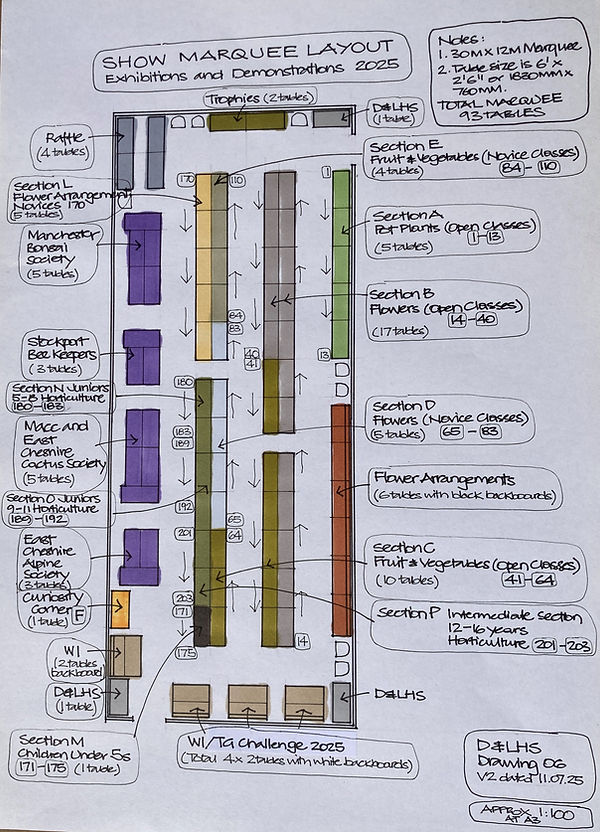 SHOW MARQUEE LAYOUT
Exhibitions and Demonstrations 2025
Notes:
1. 30M X 12M Marquee
2. Table size is 6' x
2'6" or 1830MM x
760MM.
TOTAL MARQUEE
93 TABLES
Trophies (2 tables)
D&LHS
(1 table)
Raffle
(4 tables)
Section E
Fruit & Vegetables (Novice Classes)
(4 tables) 84 - 110
Section L
Flower Arrangement
Novices 170
(5 tables)
170
110
1
Section A
Pot Plants (Open Classes)
1-13
(5 tables)
Manchester
Bonsai
Society
(5 tables)
Section B
Flowers (Open Classes)
14 - 40
(17 tables)
84
83
Stockport
Bee Keepers
(3 tables)
40
41
13
Section N Juniors
5-8 Horticulture
180 - 183
180
Section D
Flowers (Novice Classes)
(5 tables) 65 - 83
Macc and
East
Cheshire
Cactus Society
(5 tables)
183
189
Flower Arrangements
(6 tables with black backboards)
Section O Juniors
9-11 Horticulture
189 - 192
192
65
64
201
East
Cheshire
Alpine
Society
(3 tables)
Section C
Fruit & Vegetables (Open Classes)
(10 tables) 41 - 64
Curiosity
Corner F
(1 table)
203
171
Section P Intermediate Section
12-16 years
Horticulture 201 - 203
WI
(2 tables
backboard)
175
14
D&LHS
(1 table)
D&LHS
Section M
Children Under 5s
171 - 175 (1 table)
WI/TG Challenge 2025
(Total 4 x 2 tables with white backboards)
D&LHS
Drawing 06
V2 dated 11.07.25
APPROX 1:100
AT A3